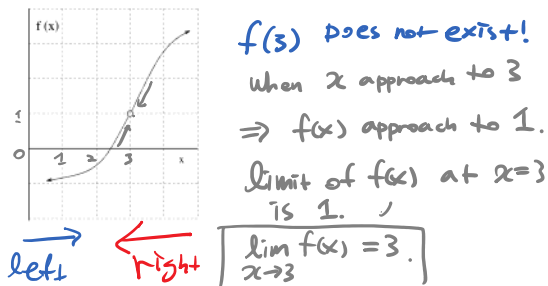 f (x)
1
0 1 2 3 x
left
right
f(3) Does not exist!
when x approach to 3
⇒ f(x) approach to 1.
limit of f(x) at x=3
is 1.
lim f(x) = 3.
x→3